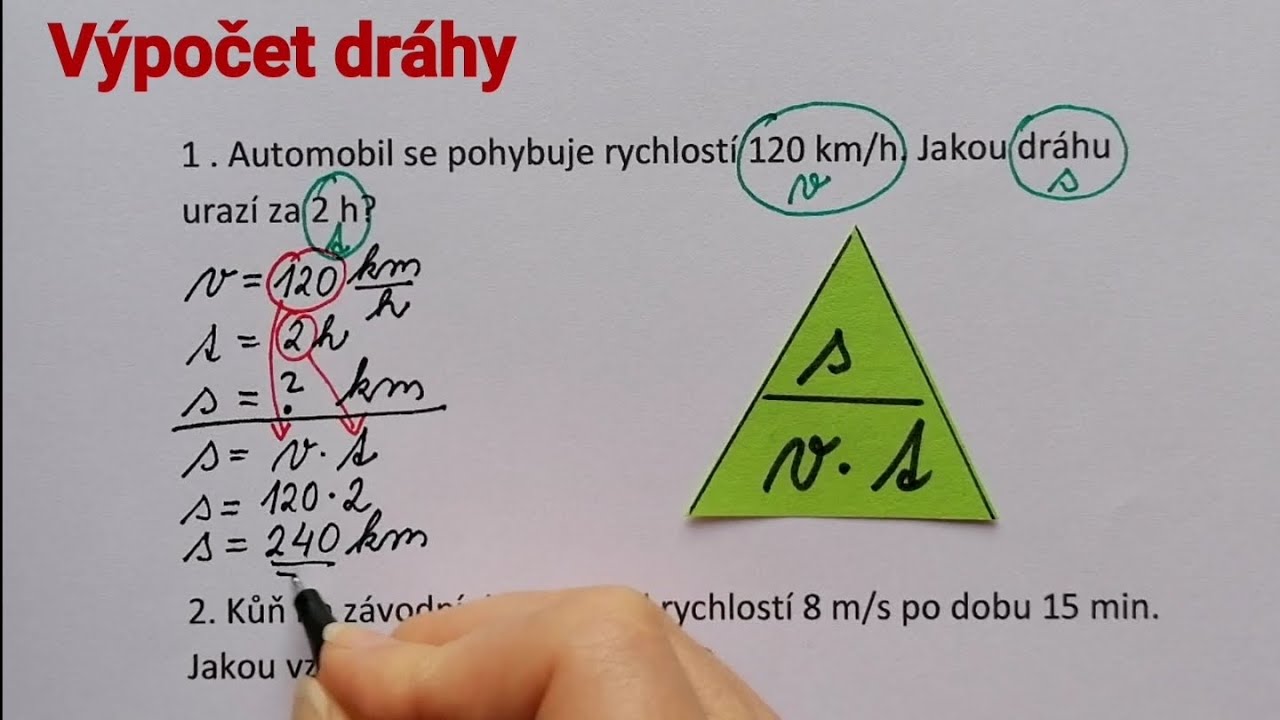 Výpočet dráhy
1 . Automobil se pohybuje rychlostí 120 km/h. Jakou dráhu
v
s
urazí za 2 h?
t
v = 120 km/h
t = 2 h
s = ? km
s = v · t
s = 120 · 2
s = 240 km
s
v · t
2. Kůň rychlostí 8 m/s po dobu 15 min.
Jakou